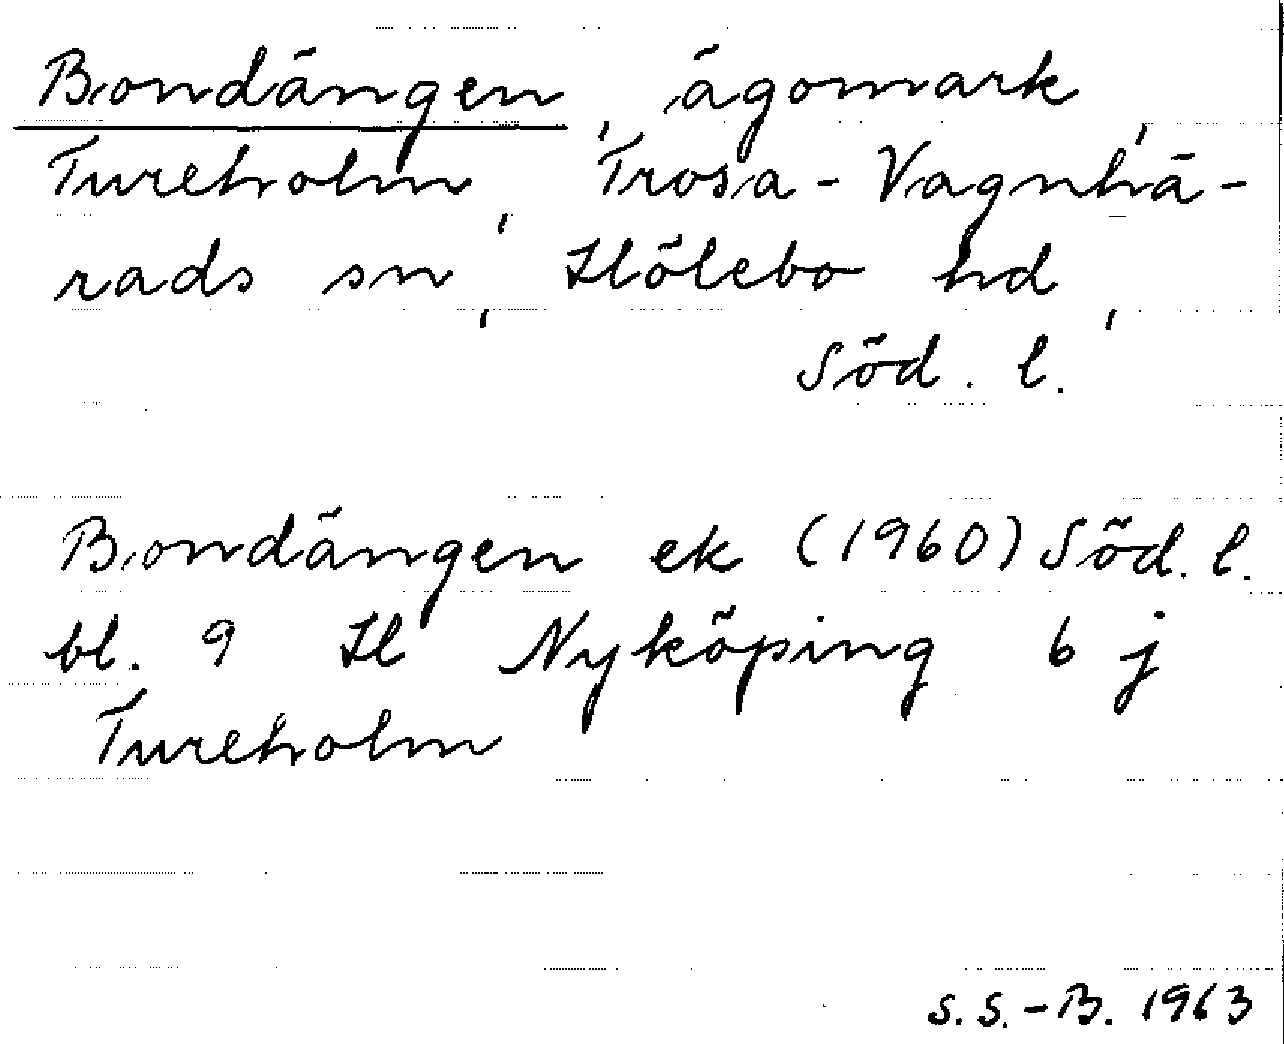 Bondängen, ägomark,
Tureholm, Trosa-Vagnhä-
rads sn, Hölebo hd,
Söd. l.
Bondängen ek (1960) Söd. l.
bl. 9 H Nyköping 6 j
Tureholm
S.S.-B. 1963